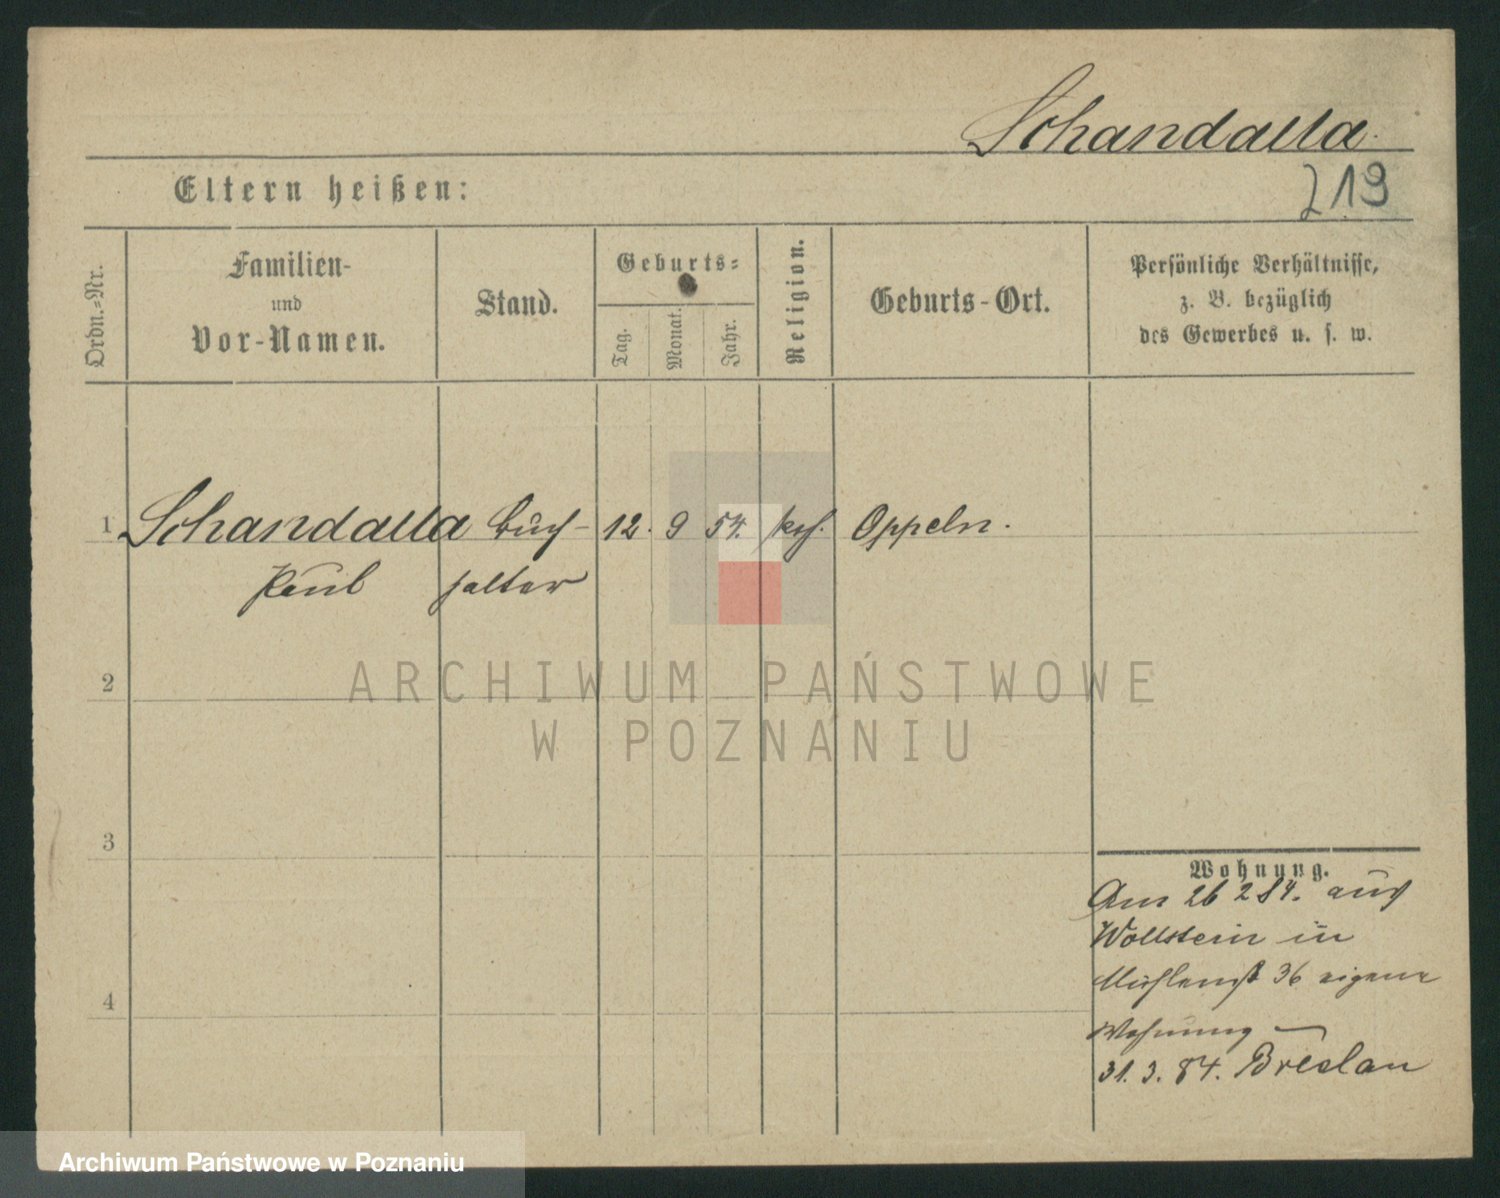 Schandalla.
Eltern heißen:
219
Ordn.-Nr.
Familien-
und
Vor-Namen.
Stand.
Geburts-
Tag.
Monat.
Jahr.
Religion.
Geburts-Ort.
Persönliche Verhältnisse,
z. B. bezüglich
des Gewerbes u. s. w.
1 Schandalla Buch- 12. 9 54. Oppeln.
Paul halter
2
3
4
Wohnung.
Am 26 2 84. aus
Wollstein in
Mühlenst 36 eigene
Wohnung —
31. 3. 84. Breslau
ARCHIWUM PAŃSTWOWE
W POZNANIU
Archiwum Państwowe w Poznaniu